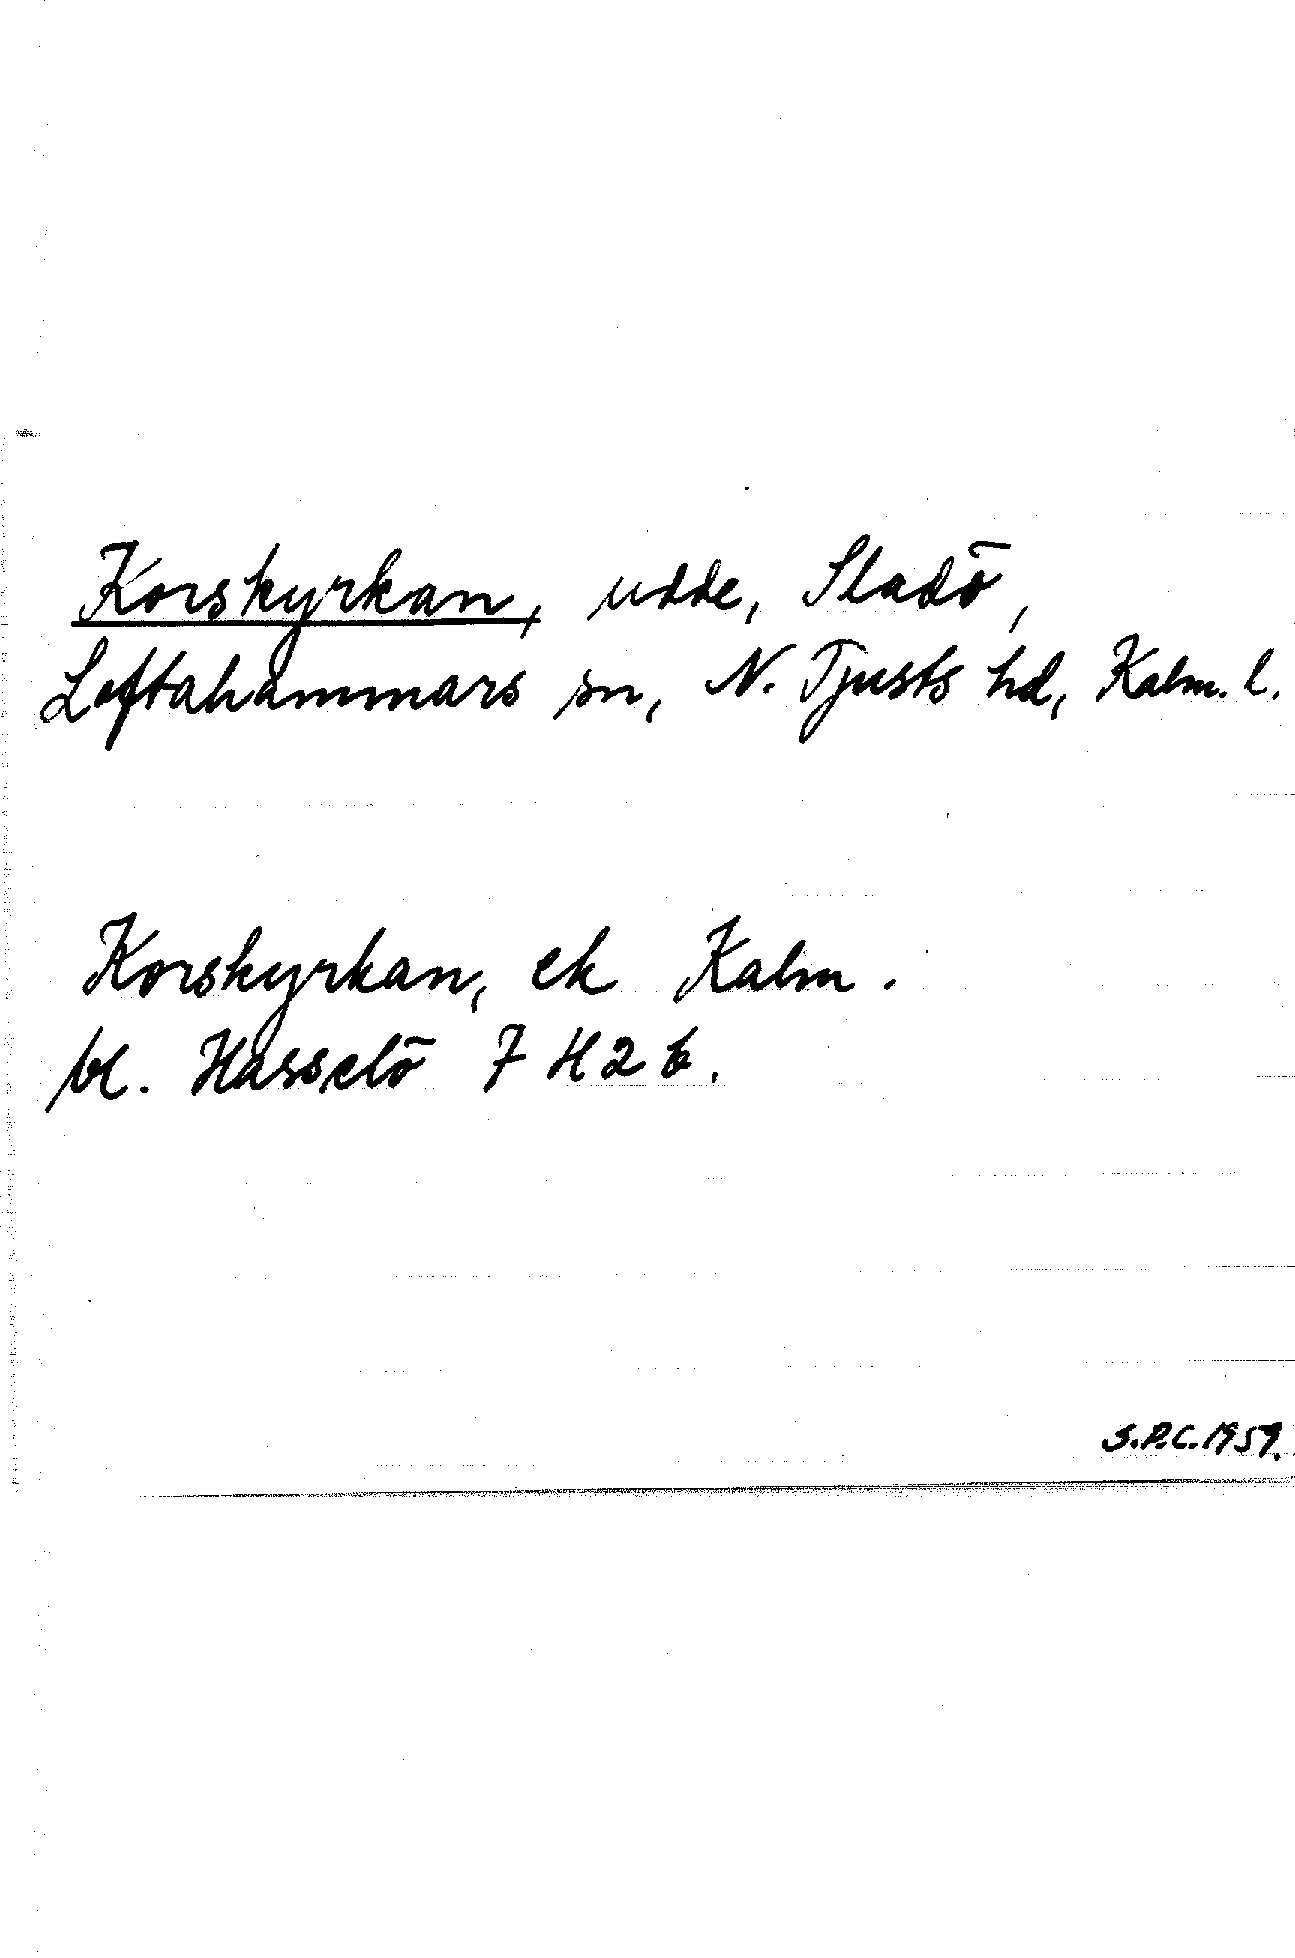 Korskyrkan, udde, Sladö,
Loftahammars sn, N. Tjusts hd, Kalm. l.
Korskyrkan, ek Kalm.
bl. Hasselö 7 H 2 b.
S.P.C. 1959.